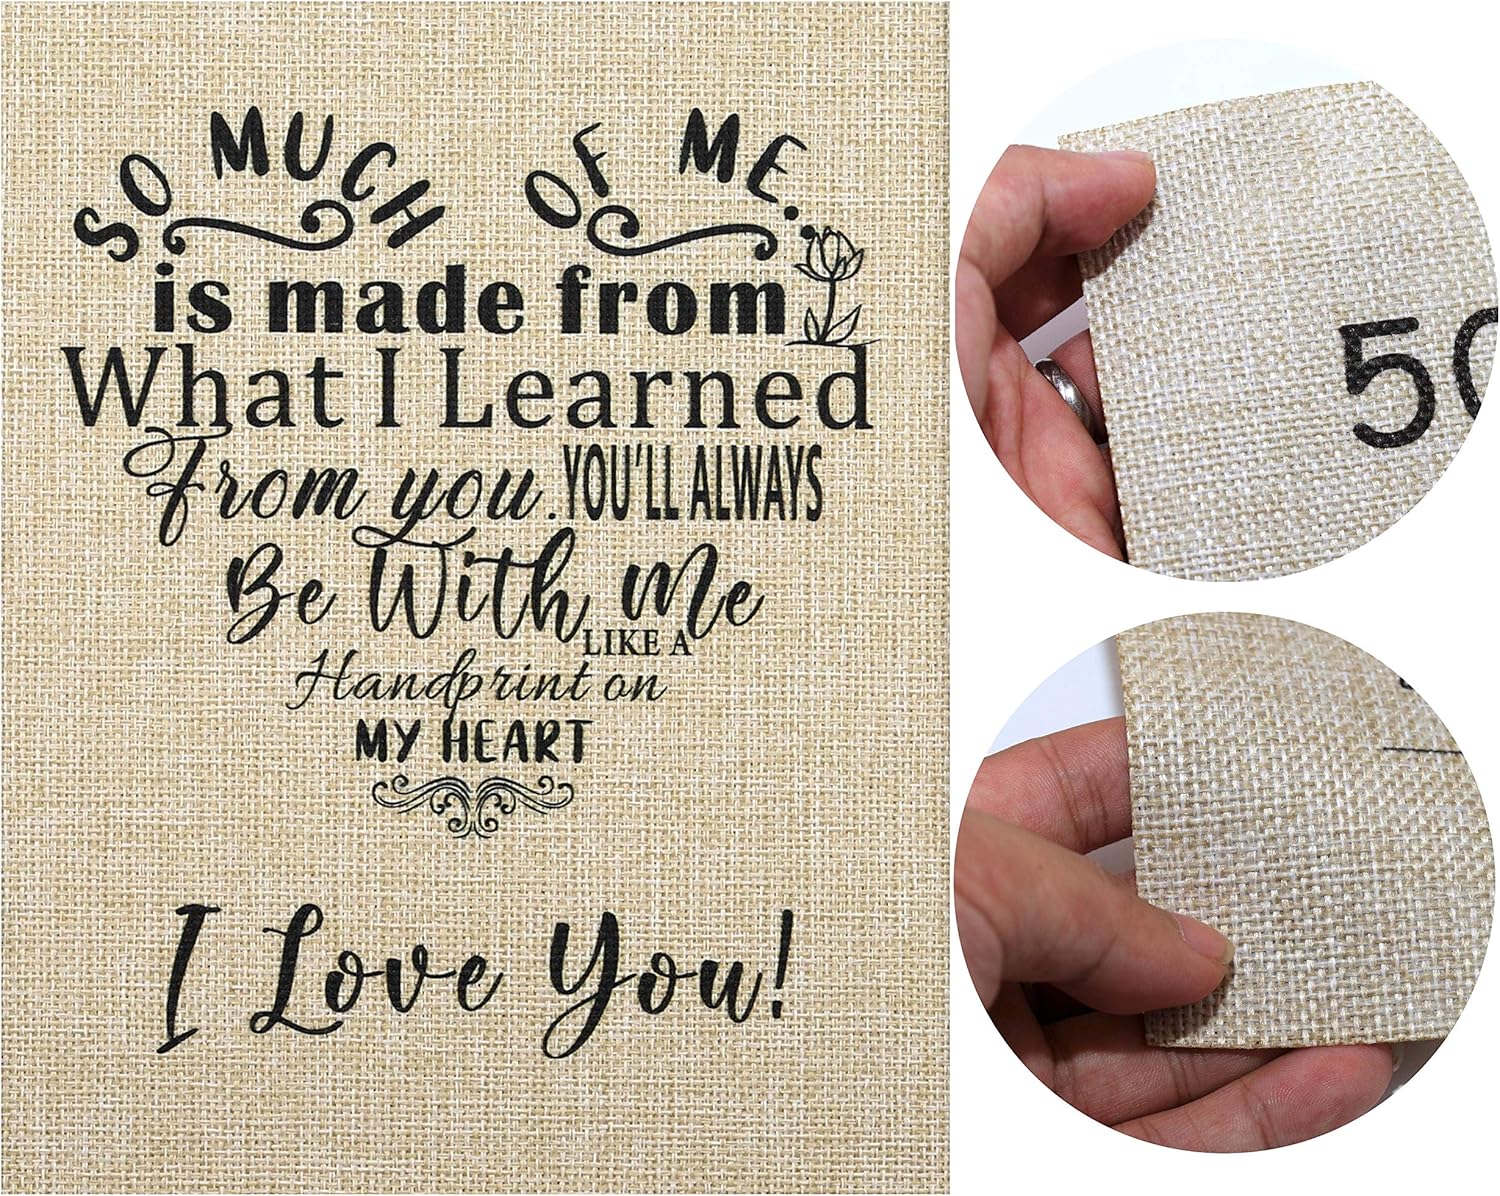 SO MUCH OF ME.
is made from
What I Learned
From you. YOU'LL ALWAYS
Be With Me
LIKE A
Handprint on
MY HEART
I Love You!
5